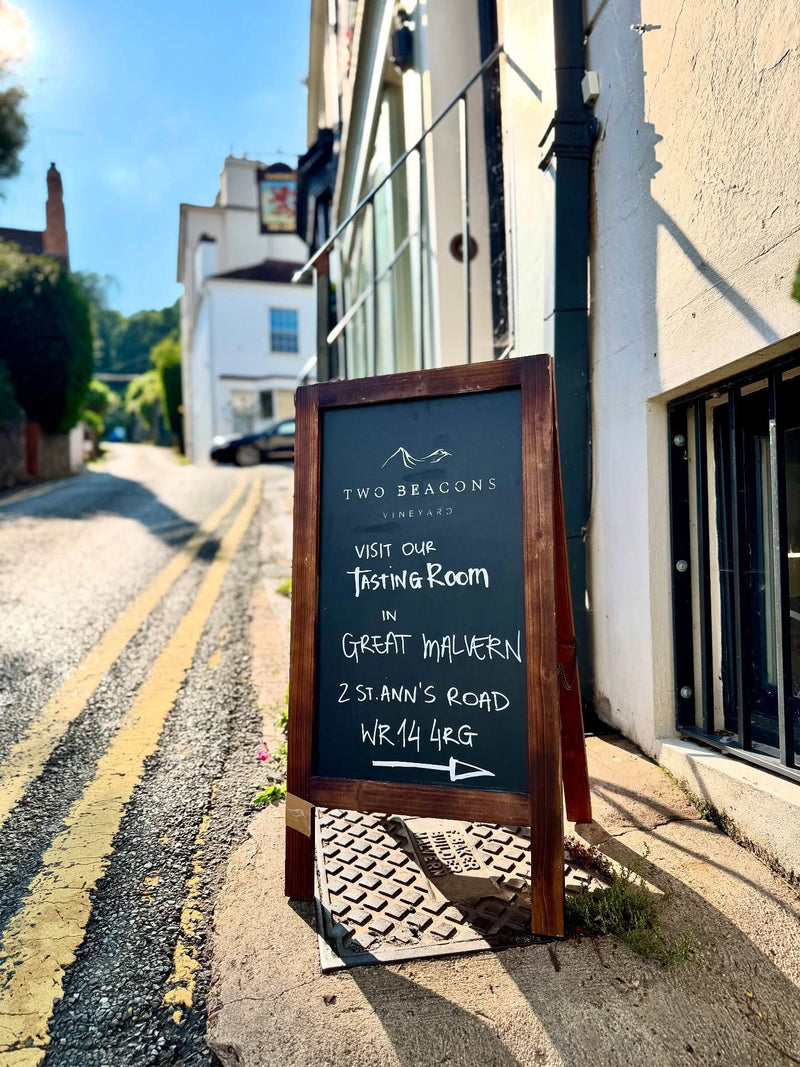 TWO BEACONS
VINEYARD
VISIT OUR
TASTING ROOM
IN
GREAT MALVERN
2 ST. ANN'S ROAD
WR14 4RG